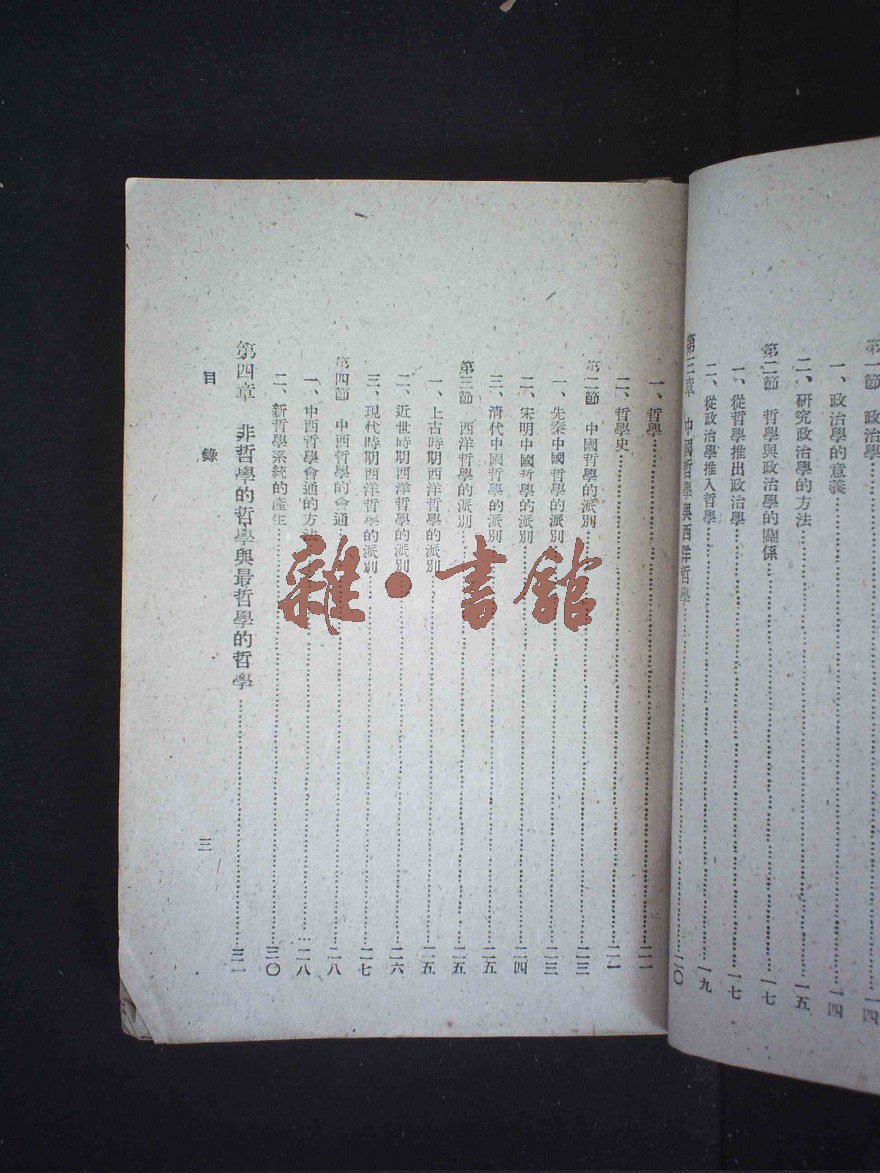 第一節 政治學……一四
一、政治學的意義……一四
二、研究政治學的方法……一五
第二節 哲學與政治學的關係……一七
一、從哲學推出政治學……一七
二、從政治學推入哲學……一九
第三章 中國哲學與西洋哲學……二〇
一、哲學……二一
二、哲學史……二一
第二節 中國哲學的派別……二三
一、先秦中國哲學的派別……二三
二、宋明中國哲學的派別……二四
三、清代中國哲學的派別……二五
第三節 西洋哲學的派別……二五
一、上古時期西洋哲學的派別……二五
二、近世時期西洋哲學的派別……二六
三、現代時期西洋哲學的派別……二七
第四節 中西哲學的會通……二八
一、中西哲學會通的方法……二八
二、新哲學系統的產生……三〇
第四章 非哲學的哲學與最哲學的哲學……三一
目錄 三
雜·書館